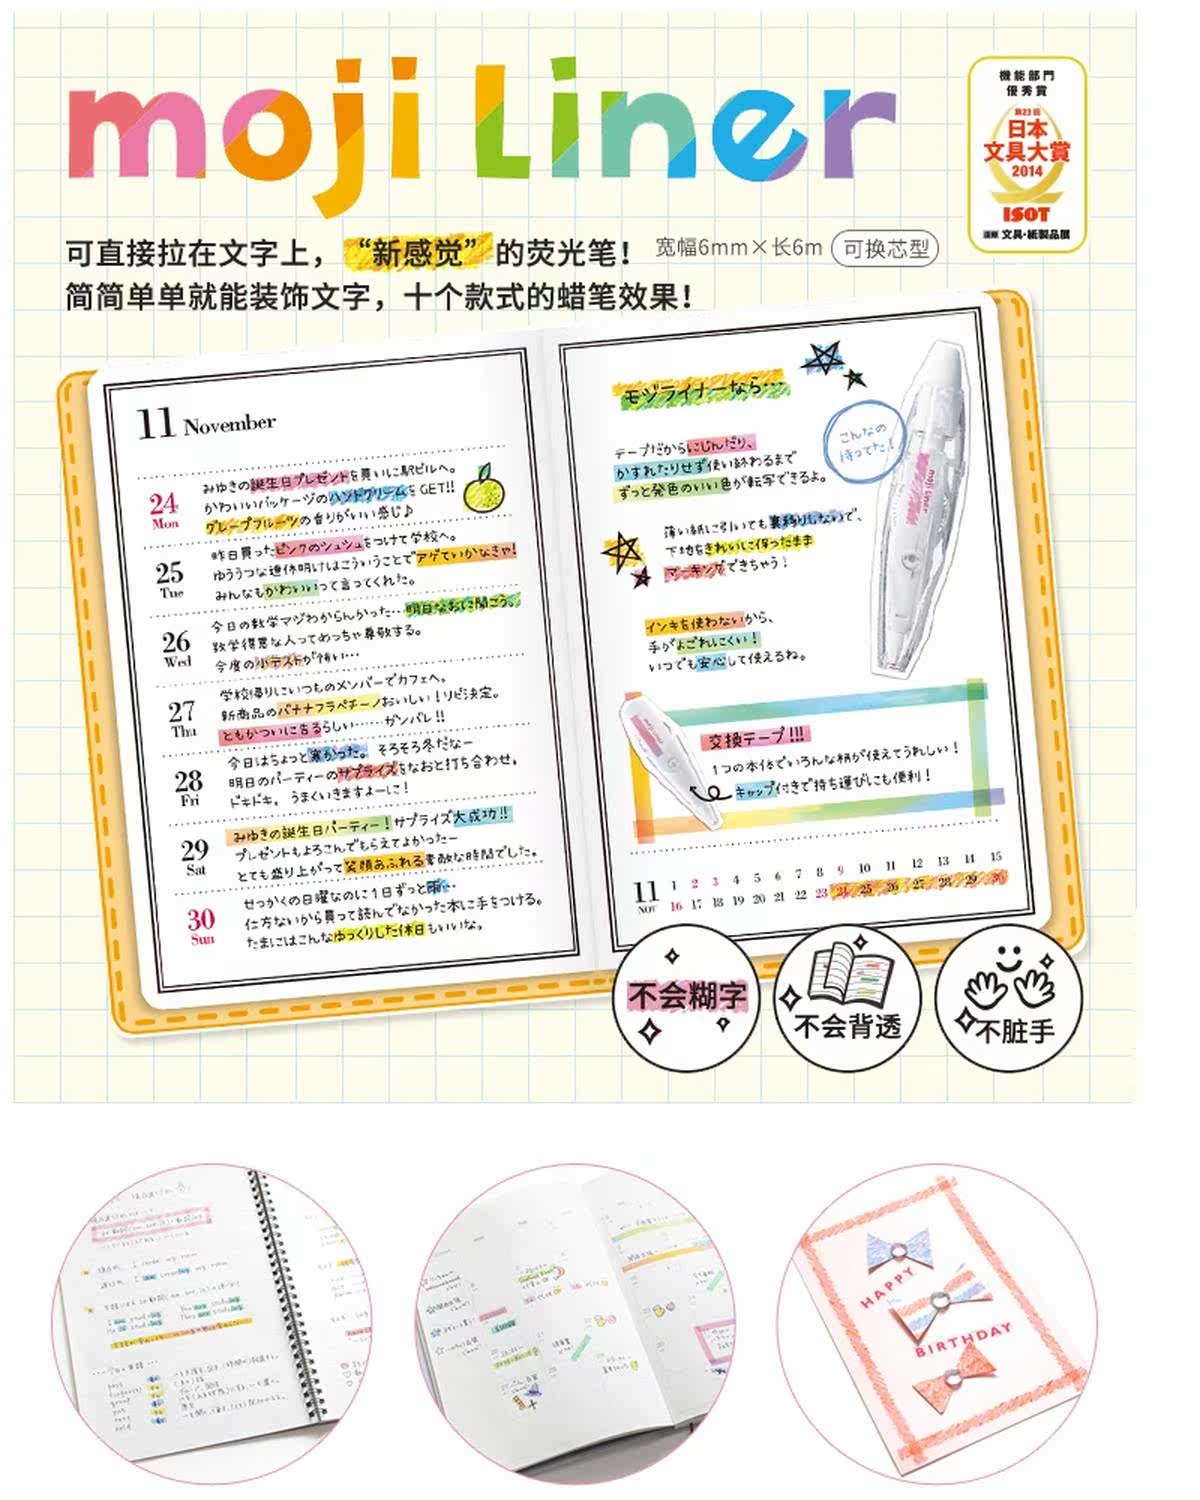 moji Liner
機能部門
優秀賞
第23回
日本
文具大賞
2014
ISOT
主催 文具・紙製品展
可直接拉在文字上，“新感觉”的荧光笔！ 宽幅6mm×长6m 可换芯型
简简单单就能装饰文字，十个款式的蜡笔效果！
11 November
24 Mon
みゆきの誕生日プレゼントを買いに駅ビルへ。
かわいいパッケージのハンドクリームをGET!!
グレープフルーツの香りがいい感じ♪
25 Tue
昨日買ったピンクのシュシュをつけて学校へ。
ゆううつな連休明けはこういうことでアゲていかなきゃ!
みんなもかわいいって言ってくれた。
26 Wed
今日の数学マジわからんかった…明日なおに聞こう。
数学得意な人ってめっちゃ尊敬する。
今度の小テストが怖い…
27 Thu
学校帰りにいつものメンバーでカフェへ。
新商品のバナナフラペチーノおいしい！リピ決定。
ともかついに告るらしい……ガンバレ!!
28 Fri
今日はちょっと寒かった。そろそろ冬だなー
明日のパーティーのサプライズをなおと打ち合わせ。
ドキドキ。うまくいきますよーに！
29 Sat
みゆきの誕生日パーティー！サプライズ大成功!!
プレゼントもよろこんでもらえてよかったー
とても盛り上がって笑顔あふれる素敵な時間でした。
30 Sun
せっかくの日曜なのに1日ずっと雨…
仕方ないから買って読んでなかった本に手をつける。
たまにはこんなゆっくりした休日もいいな。
モジライナーなら…
こんなの
待ってた！
テープだからにじんだり、
かすれたりせず使い終わるまで
ずっと発色のいい色が転写できるよ。
薄い紙に引いても裏移りしないで、
下地をきれいに保ったまま
マーキングできちゃう！
インキを使わないから、
手がよごれにくい！
いつでも安心して使えるね。
moji Liner
交換テープ!!!
1つの本体でいろんな柄が使えてうれしい！
キャップ付きで持ち運びにも便利！
11 NOV
1 2 3 4 5 6 7 8 9 10 11 12 13 14 15
16 17 18 19 20 21 22 23 24 25 26 27 28 29 30
不会糊字
不会背透
不脏手
HAPPY
BIRTHDAY